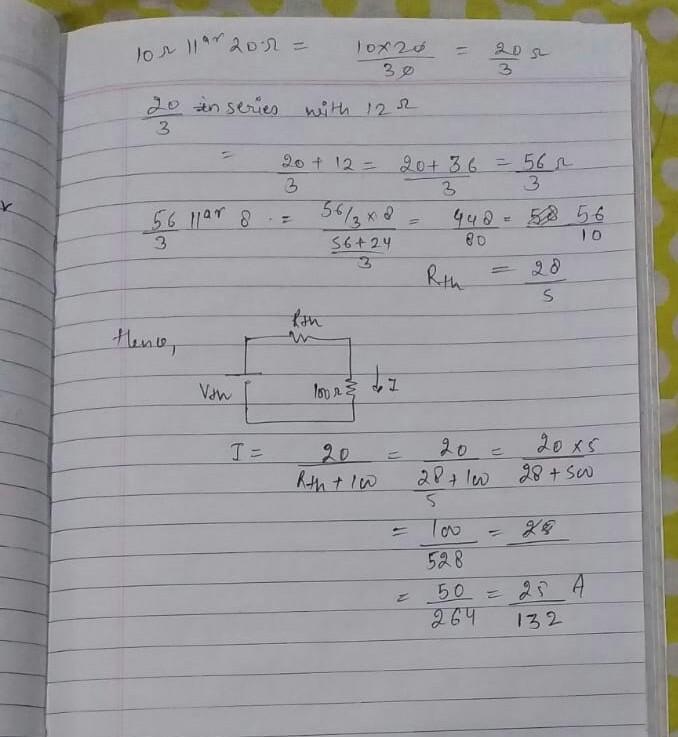 10Ω 11ar 20Ω = 10×20/30 = 20/3 Ω
20/3 in series with 12Ω
= 20/3 + 12 = 20+36/3 = 56/3 Ω
56/3 11ar 8 = 56/3 × 8 / 56+24/3 = 448/80 = 56/10
Rth = 28/5
Hence,
Rth
Vth 100Ω ↓I
I = 20/Rth+100 = 20/28/5+100 = 20×5/28+500
= 100/528 =
= 50/264 = 25/132 A